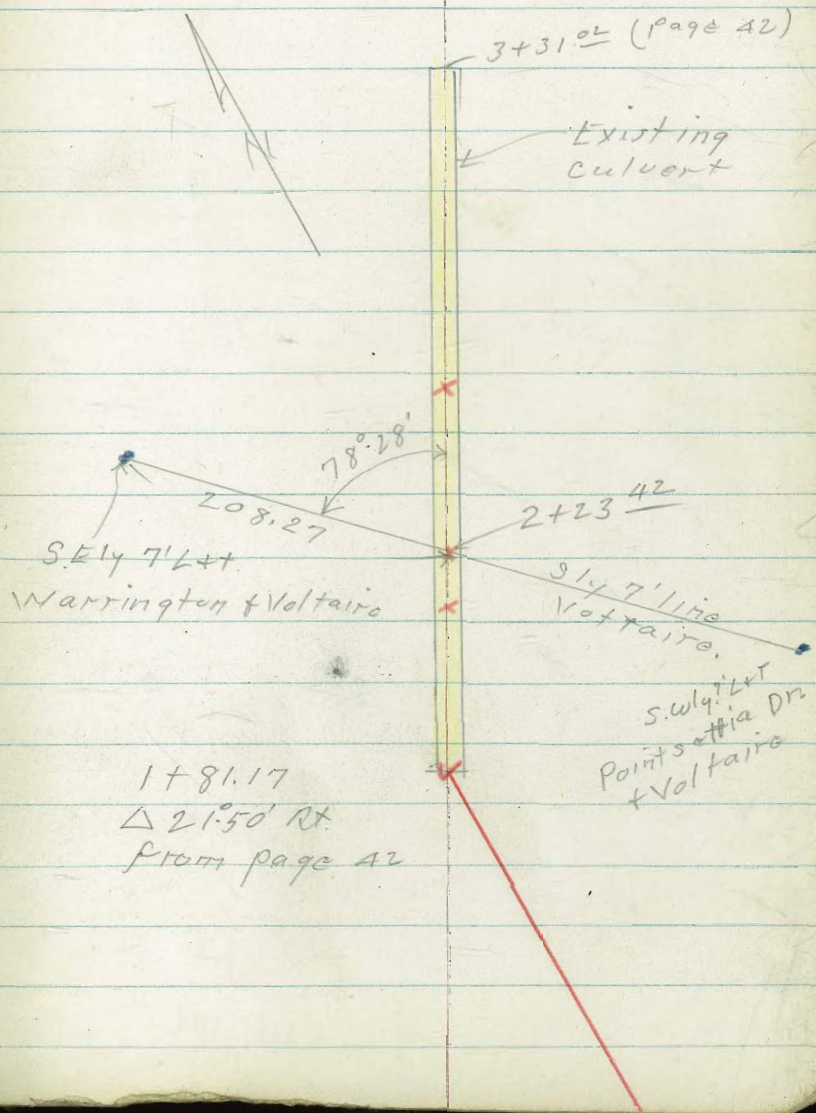 3+31.02 (page 42)
N
Existing
culvert
78°28'
208.27
2+23 42
S.Ely 7' L+t
Warrington & Voltaire
Sly 7' line
Voltaire.
S.Wly 7' L+T
Pointsettia Dr.
& Voltaire
1+81.17
Δ 21°50' Rt.
from page 42